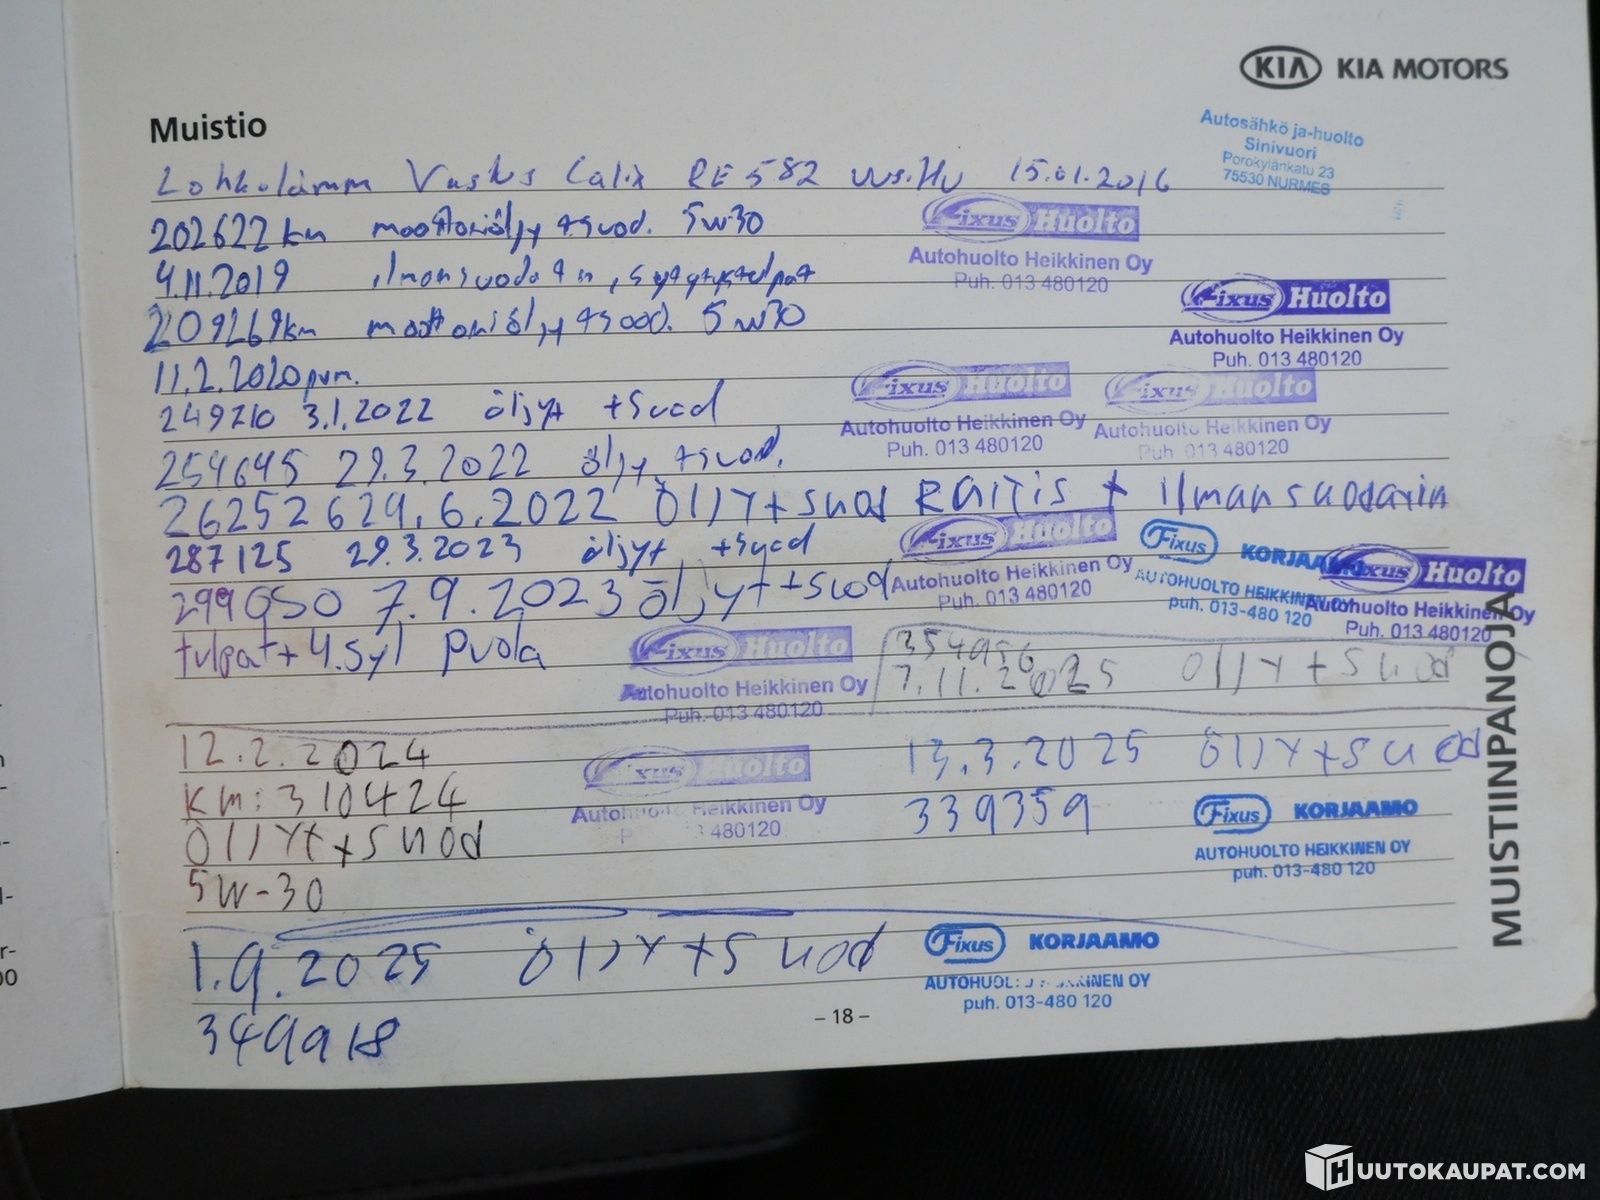 KIA KIA MOTORS
Muistio
Autosähkö ja-huolto
Sinivuori
Porokylänkatu 23
75530 NURMES
Lohkolämm Vastus Calix RE 582 uus.Hu 15.01.2016
202622 km moottoriöljy +suod. 5w30
Fixus Huolto
Autohuolto Heikkinen Oy
Puh. 013 480120
4.11.2019 ilmansuodatin, sytytystulpat
209269km moottoriöljy +suod. 5w30
Fixus Huolto
Autohuolto Heikkinen Oy
Puh. 013 480120
11.2.2020 pvm.
249210 3.1.2022 öljyt +suod
Fixus Huolto
Autohuolto Heikkinen Oy
Puh. 013 480120
Fixus Huolto
Autohuolto Heikkinen Oy
Puh. 013 480120
254645 29.3.2022 öljy +suod.
262526 29.6.2022 ÖlJYt+suod RAITIS + ilmansuodatin
287125 29.3.2023 öljyt +suod
Fixus Huolto
Autohuolto Heikkinen Oy
Puh. 013 480120
Fixus KORJAAMO
AUTOHUOLTO HEIKKINEN OY
puh. 013-480 120
Fixus Huolto
Autohuolto Heikkinen Oy
Puh. 013 480120
299050 7.9.2023 öljyt+suod
tulpat + 4.syl puola
Fixus Huolto
Autohuolto Heikkinen Oy
Puh. 013 480120
354956
7.11.2025 ÖlJYt+suod
12.2.2024
Km: 310424
ÖlJYt+suod
5W-30
Fixus Huolto
Autohuolto Heikkinen Oy
P 3 480120
13.3.2025 ÖlJYt+suod
339359
Fixus KORJAAMO
AUTOHUOLTO HEIKKINEN OY
puh. 013-480 120
1.9.2025 ÖlJYt+suod
349918
Fixus KORJAAMO
AUTOHUOLTO HEIKKINEN OY
puh. 013-480 120
MUISTIINPANOJA
– 18 –
HUUTOKAUPAT.COM